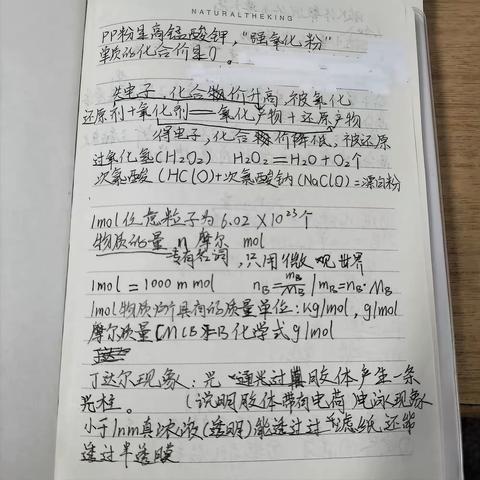 NATURALTHEKING
PP粉是高锰酸钾,“强氧化粉”
单质的化合价是0。
失电子,化合价升高,被氧化
还原剂+氧化剂══氧化产物+还原产物
得电子,化合价降低,被还原
过氧化氢(H₂O₂) H₂O₂=H₂O+O₂个
次氯酸(HClO)+次氯酸钠(NaClO)=漂白粉
1mol任意粒子为6.02×10²³个
物质的量 n 摩尔 mol
专有名词,只用微观世界
1mol=1000mmol n_B=m_B/M_B / m_B=n_B·M_B
1mol物质所具有的质量单位:kg/mol,g/mol
摩尔质量[M(B)B化学式g/mol
丁达尔现象:光通过胶体产生一条
光柱。(说明胶体带有电荷 电泳现象
小于1nm真溶液(透明)能透过过滤纸还能
透过半透膜